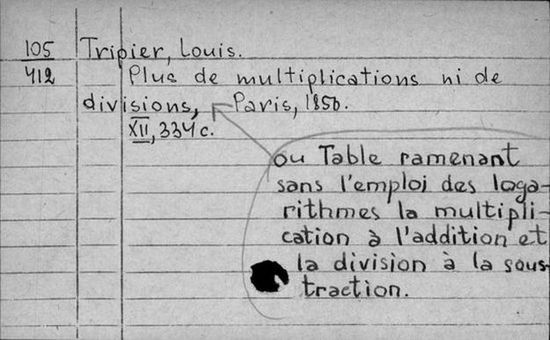 105
412
Tripier, Louis.
Plus de multiplications ni de
divisions, Paris, 1856.
XII, 334 c.
ou Table ramenant
sans l'emploi des loga-
rithmes la multipli-
cation à l'addition et
la division à la sous-
traction.